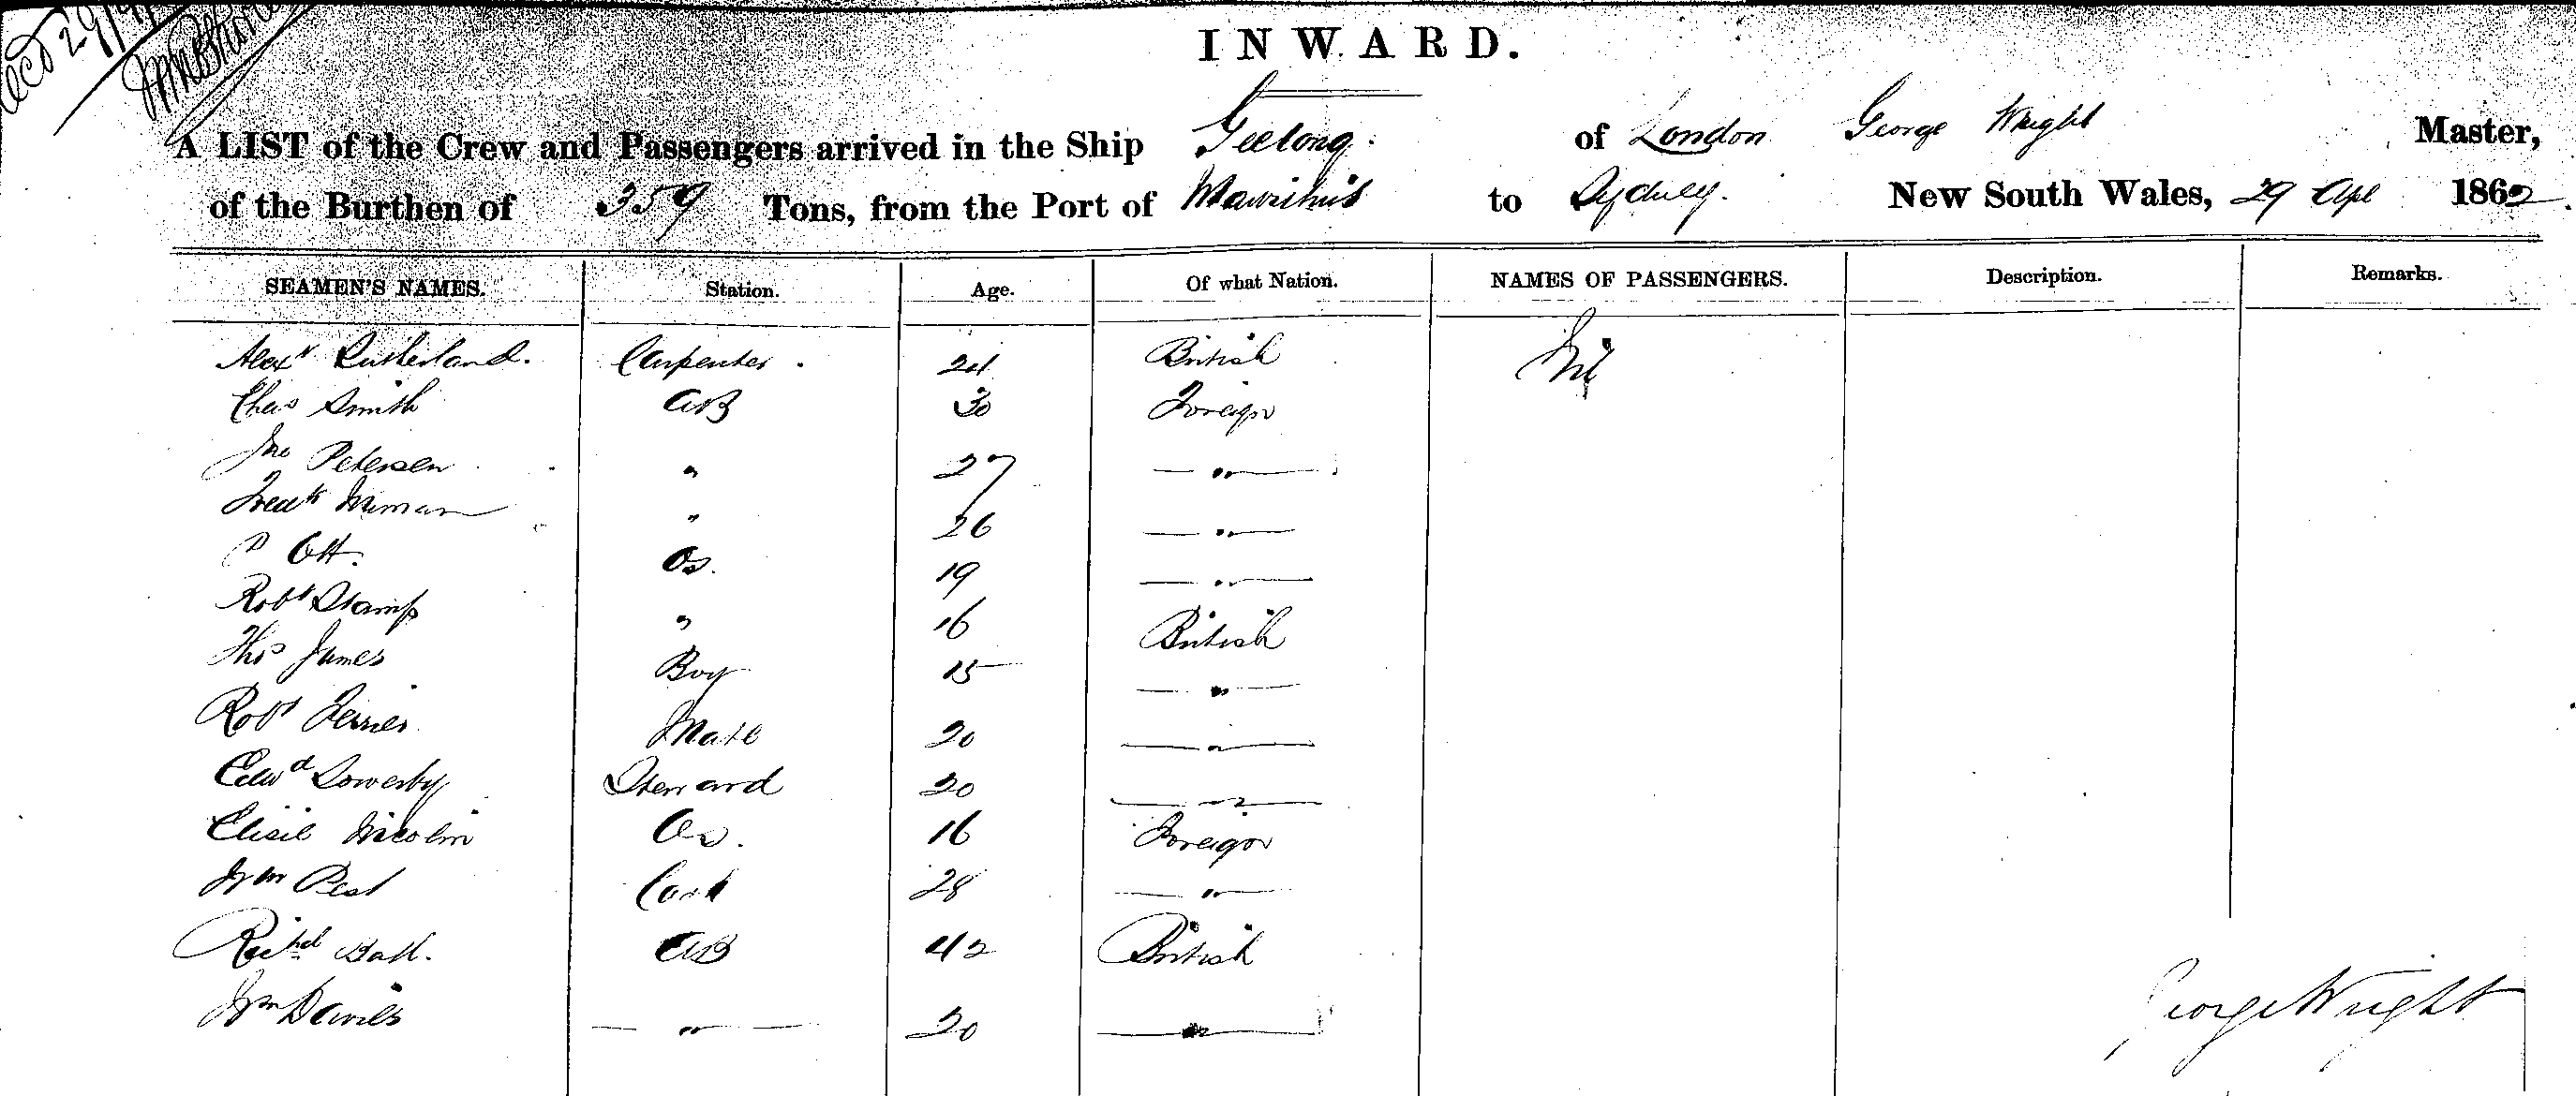 INWARD.
A LIST of the Crew and Passengers arrived in the Ship Geelong of London George Wright Master,
of the Burthen of 359 Tons, from the Port of Mauritius to Sydney. New South Wales, 29 Apl 1862.
SEAMEN'S NAMES. Station. Age. Of what Nation. NAMES OF PASSENGERS. Description. Remarks.
Alexr Sutherland. Carpenter. 24 British Nil
Chas Smith AB 30 Foreign
Jno Petersen " 27 "
Fredk " 26 "
P Ott. Os. 19 "
Robt Stamp " 16 British
Thos James Boy 15 "
Robt Mate 20 "
Edwd Sowerby Steward 20 "
Os. 16 Foreign
Wm Pest Cook 28 "
Richd Ball. AB 42 British
Wm Davies " 20 "
George Wright